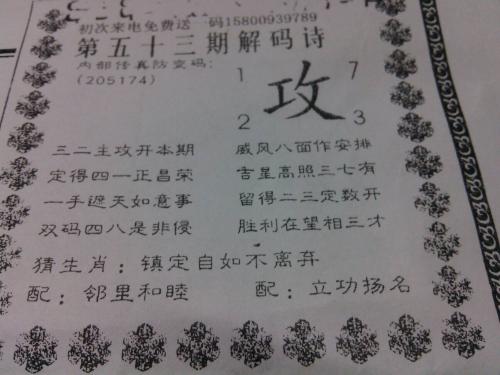 初次来电免费送一码15800939789
第五十三期解码诗
内部传真防变码：
(205174)
1 7
攻
2 3
三二主攻开本期 威风八面作安排
定得四一正昌荣 吉星高照三七有
一手遮天如意事 留得二三定数开
双码四八是非侵 胜利在望相三才
猜生肖：镇定自如不离弃
配：邻里和睦 配：立功扬名